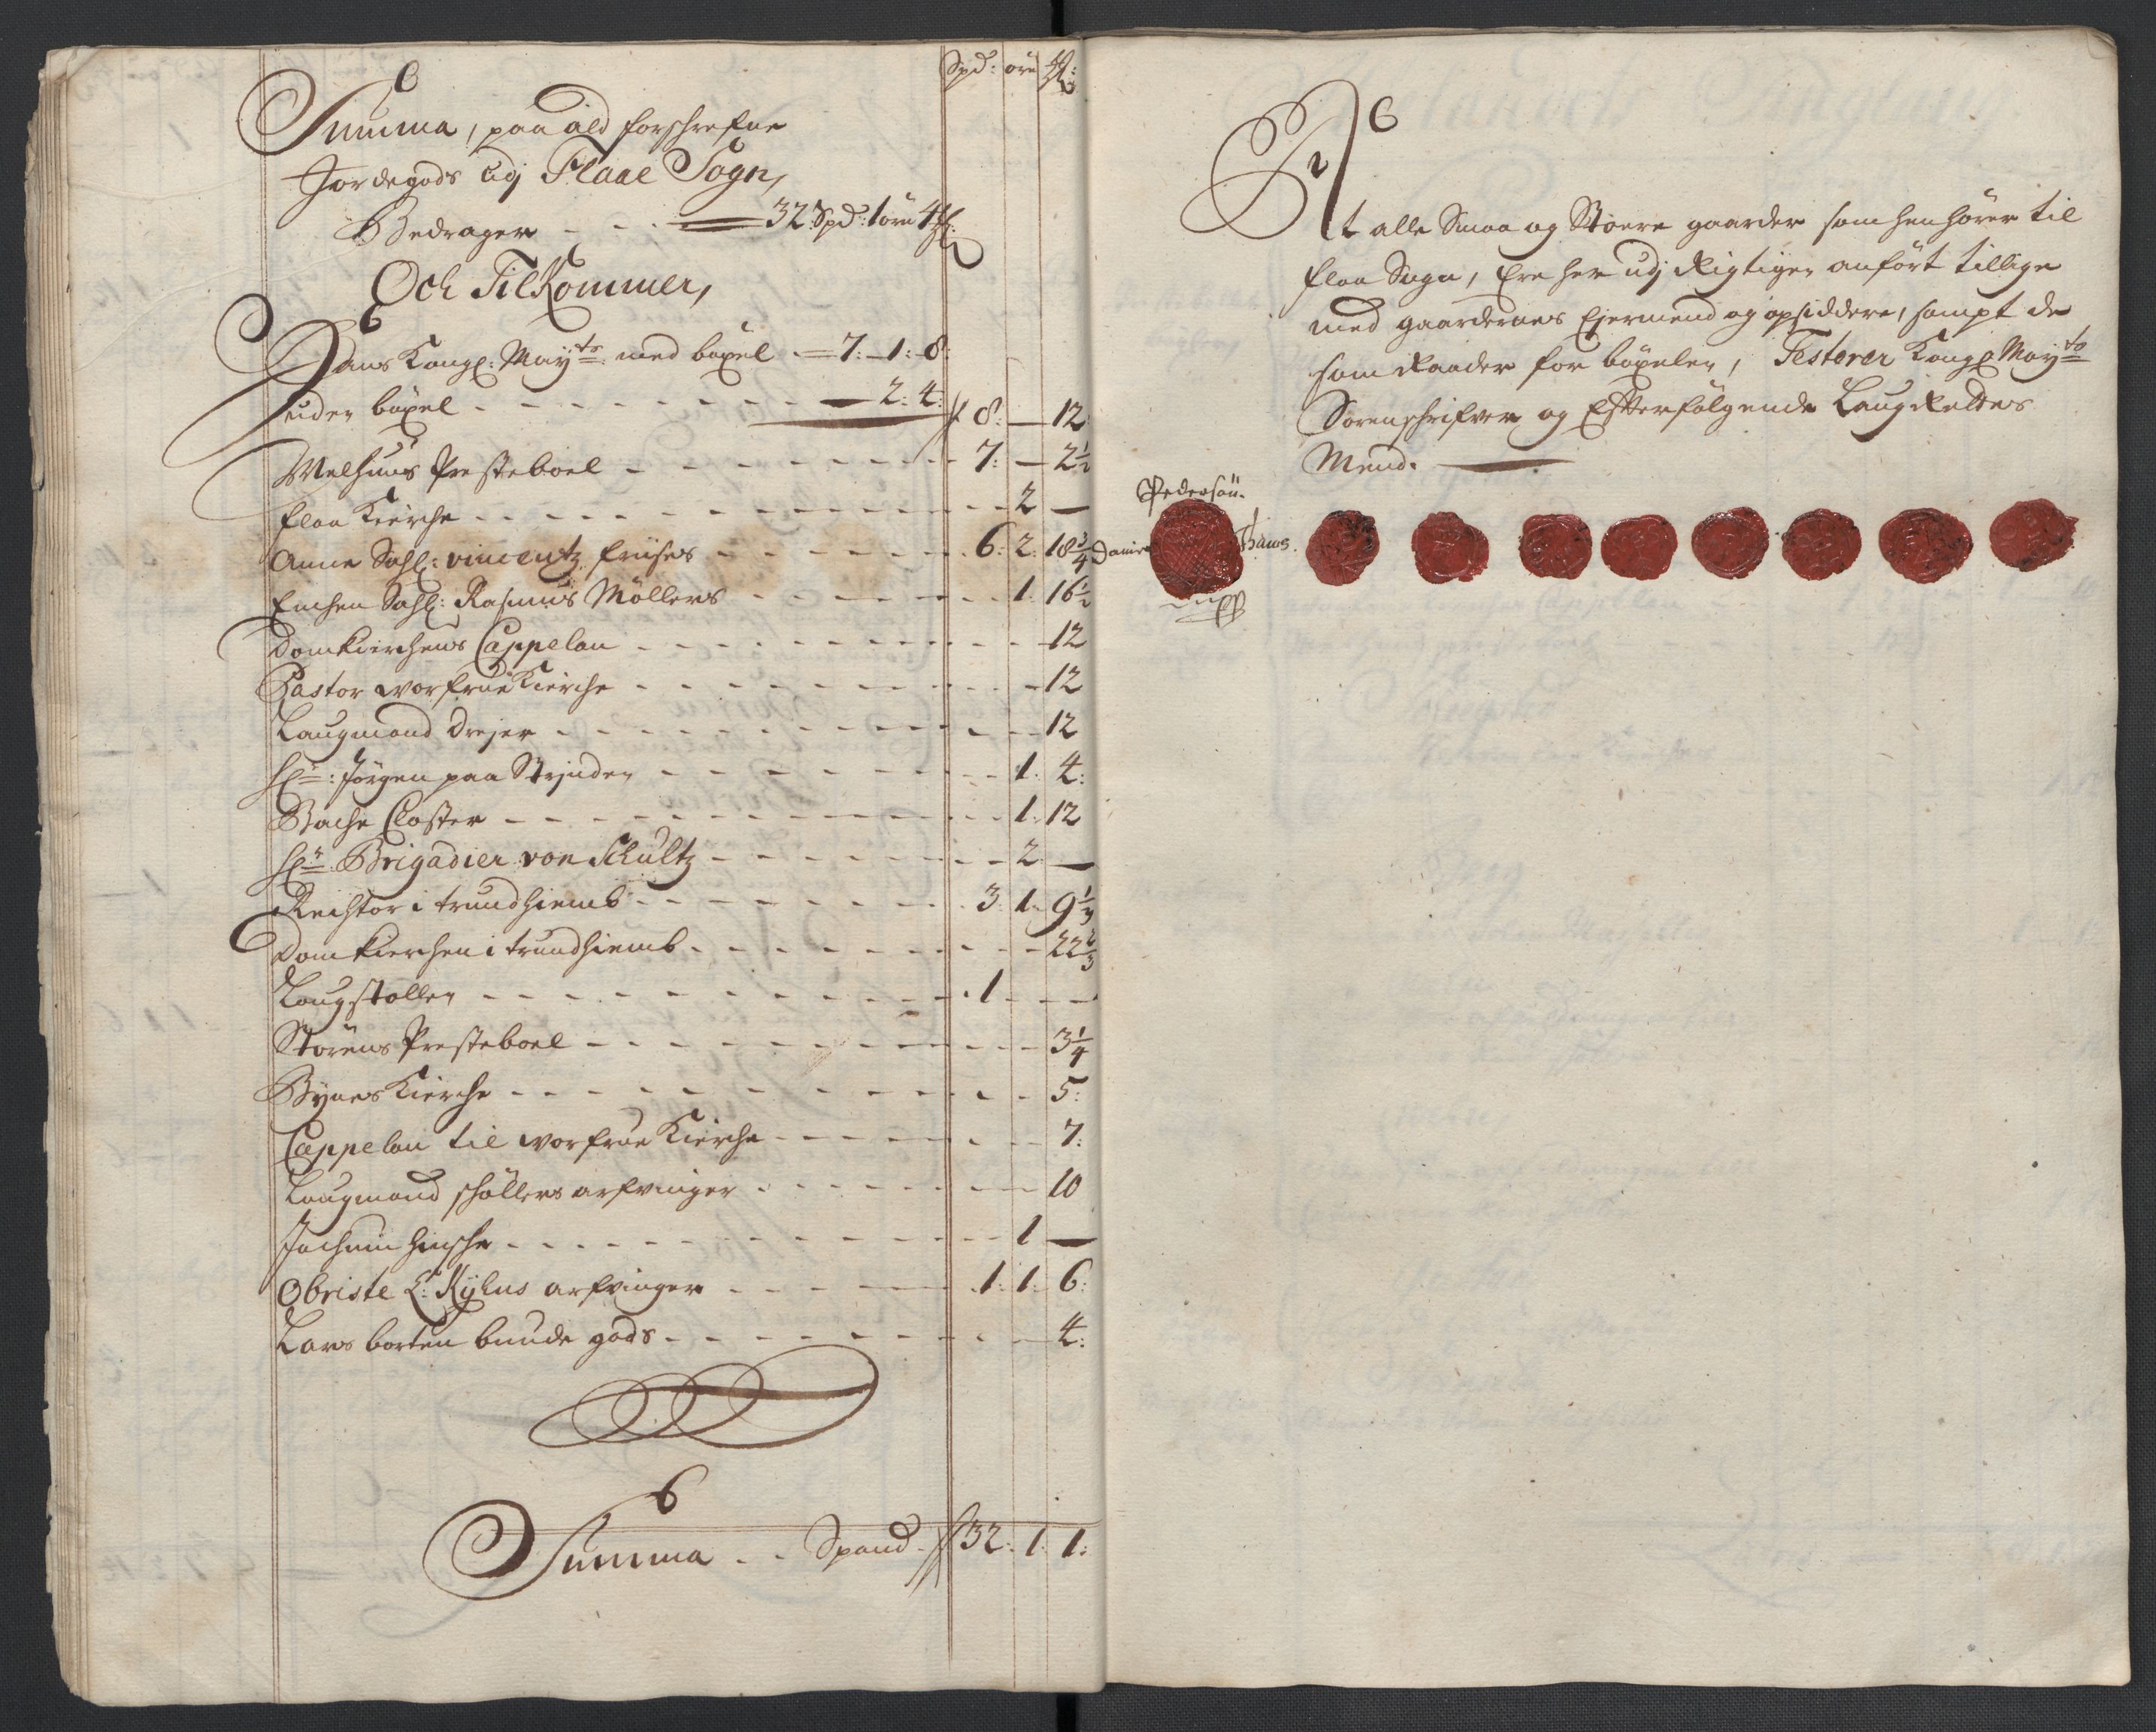 Spd: öre ℔:
Summa, paa ald forschrefne
Jordegods udj Flaae Sogn,
Bedrager - - - 32 Spd: 1 öre 4 ℔:
Och TilKommer,
Hans Kongl: Mayts: med böxel - 7: 1: 8:
uden böxel - - - 2: 4: 8: - 12
Melhuus Presteboel - - - 7: - 2 1/2
Flaa Kierche - - - 2 -
Anne Sahl: vincentz friises - - - 6: 2: 18 3/4
Enchen Sahl: Rasmus Möllers - - - 1: 16 1/2
Domkierchens Cappelan - - - 12
Pastor worfrue Kierche - - - 12
Laugmand Drejer - - - 12
Hr: Jörgen paa Strinden - - - 1: 4:
Bache Closter - - - 1: 12
Hr: Brigadier von Schultz - - - 2: -
Rechtor i trundhiemb - - - 3: 1: 9 1/3
Domkierchen i trundhiemb - - - 22 2/3
Laugstollen - - - 1 - -
Störens Presteboel - - - 3 1/4
Bynes Kierche - - - 5:
Cappelan til worfrue Kierche - - - 7:
Laugmand schöllers arfvinger - - - 10
Jochum - - - 1 -
Obriste L: arfvinger - - - 1: 1: 6:
Lars borten bunde gods - - - 4:
Summa - - Spand 32: 1: 1:
At alle Smaa og Stoere gaarder som henhörer til
flaa Sogn, Ere her udj Rigtigen anfört tillige
med gaardernes Ejermend og opsiddere, sampt de
som Raader for böxelen, Testerer Kongl Mayts
Sorenschrifver og Efterfölgende LaugRettes
Mend.
Pedersön.